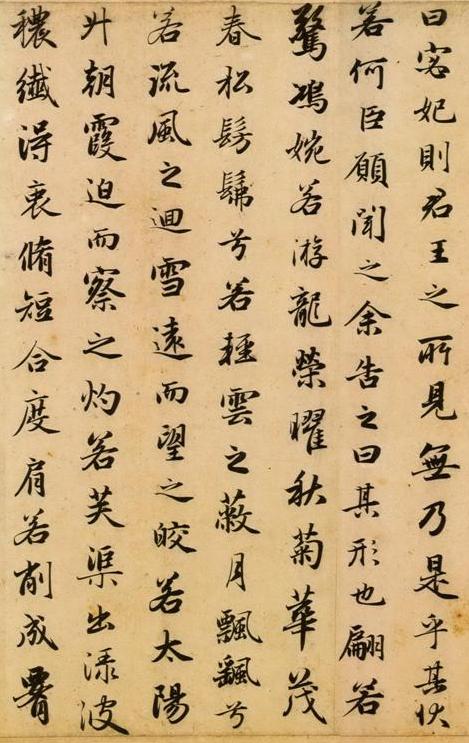 曰宓妃則君王之所見無乃是乎其狀
若何臣願聞之余告之曰其形也翩若
驚鴻婉若游龍榮曜秋菊華茂
春松髣髴兮若輕雲之蔽月飄飖兮
若流風之迴雪遠而望之皎若太陽
升朝霞迫而察之灼若芙渠出淥波
穠纖得衷脩短合度肩若削成腰